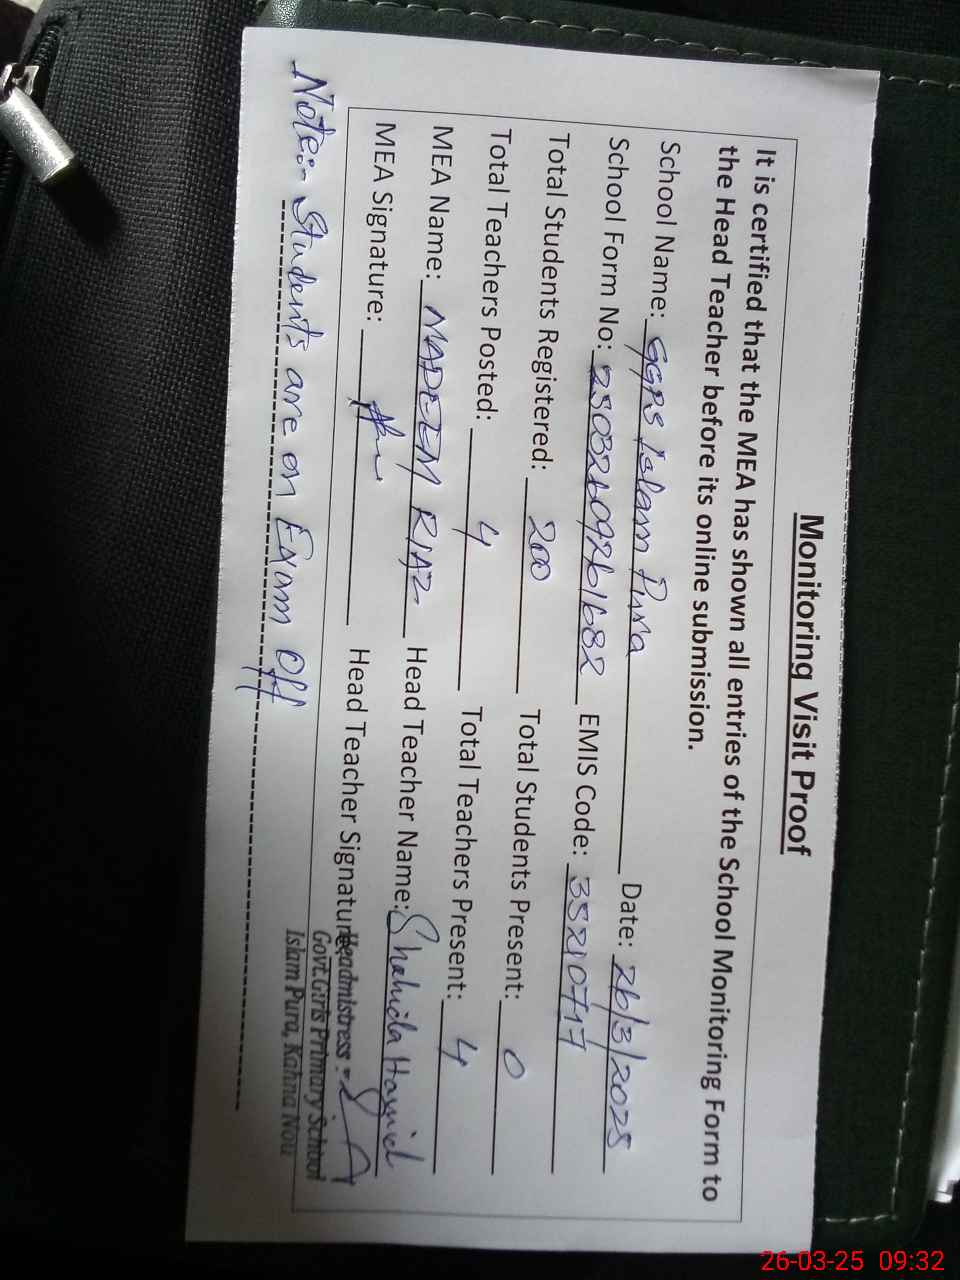 Monitoring Visit Proof
It is certified that the MEA has shown all entries of the School Monitoring Form to
the Head Teacher before its online submission.
School Name: GGPS Islam Pura Date: 26/3/2025
School Form No: EMIS Code: 35210717
Total Students Registered: 200 Total Students Present: 0
Total Teachers Posted: 4 Total Teachers Present: 4
MEA Name: NADEEM RIAZ Head Teacher Name: Shahida Hamid
MEA Signature: Head Teacher Signature:
Headmistress
Govt.Girls Primary School
Islam Pura, Kahna Nou
Note:- Students are on Exam Off
26-03-25 09:32